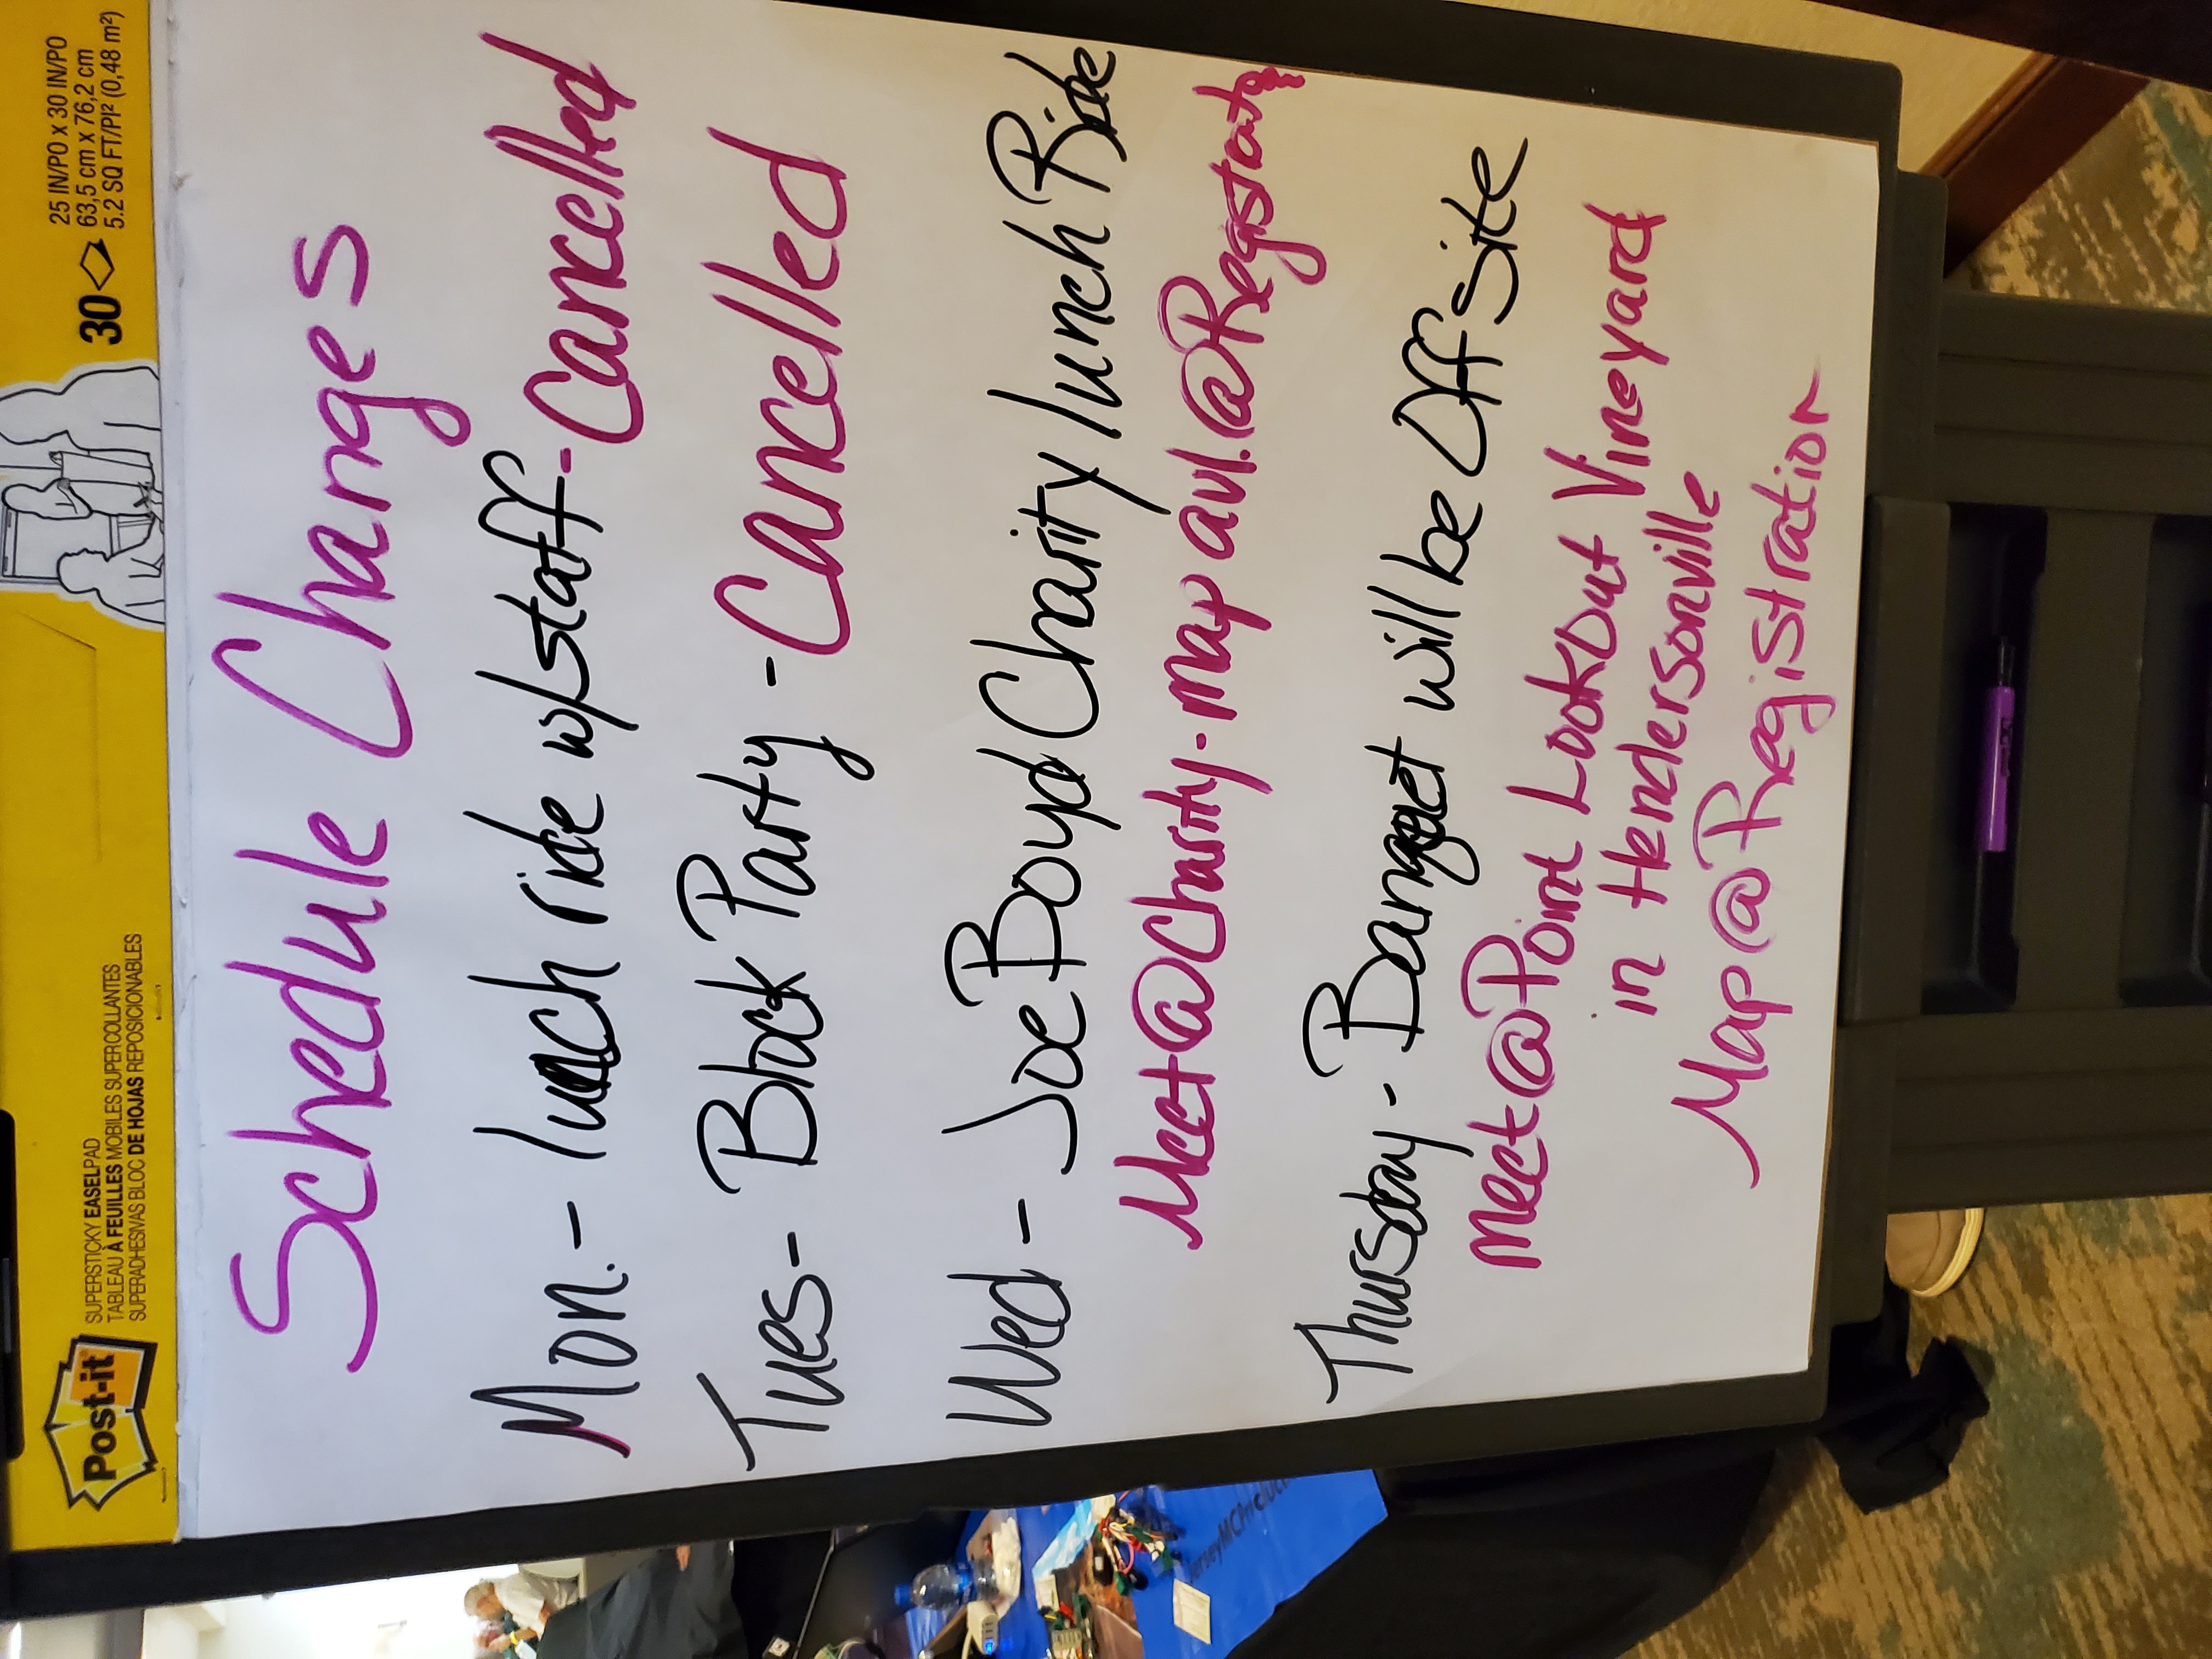 Post-it
SUPERSTICKY EASELPAD
TABLEAU À FEUILLES MOBILES SUPERCOLLANTES
SUPERADHESIVAS BLOC DE HOJAS REPOSICIONABLES
30
25 IN/PO x 30 IN/PO
63,5 cm x 76,2 cm
5.2 SQ FT/PI² (0,48 m²)
Schedule Changes
Mon. - lunch ride w/staff - Cancelled
Tues - Block Party - Cancelled
Wed - Joe Boyd Charity lunch Ride
Meet @ Charity - map avl. @ Registration
Thursday - Banquet will be Off Site
Meet @ Point Lookout Vineyard
in Hendersonville
Map @ Registration